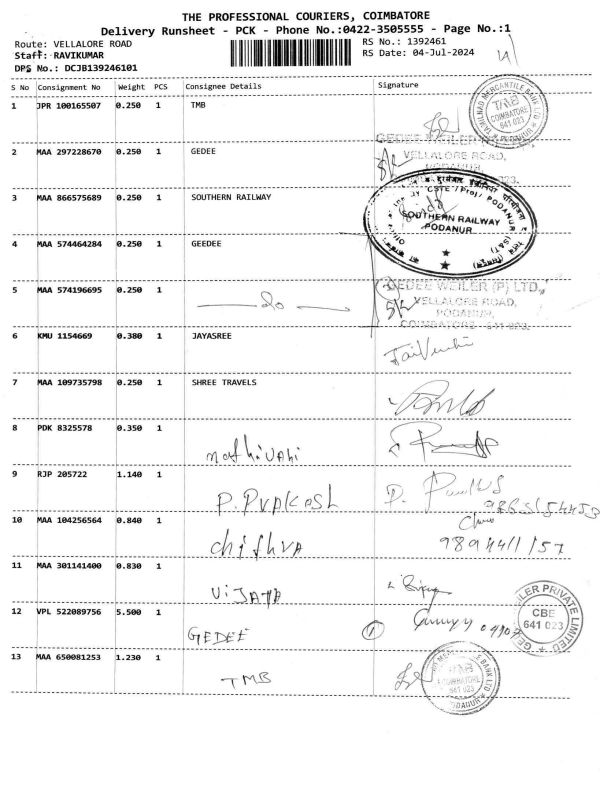 THE PROFESSIONAL COURIERS, COIMBATORE
Delivery Runsheet - PCK - Phone No.:0422-3505555 - Page No.:1
Route: VELLALORE ROAD
RS No.: 1392461
Staff: RAVIKUMAR
RS Date: 04-Jul-2024
DPS No.: DCJB139246101
S No Consignment No Weight PCS Consignee Details Signature
1 JPR 100165507 0.250 1 TMB
TAMILNAD MERCANTILE BANK LTD
TMB
COIMBATORE
641 023
PODANUR
GEDEE WEILER (P) LTD.,
2 MAA 297228670 0.250 1 GEDEE
VELLALORE ROAD,
PODANUR
3 MAA 866575689 0.250 1 SOUTHERN RAILWAY
SOUTHERN RAILWAY
PODANUR
4 MAA 574464284 0.250 1 GEEDEE
5 MAA 574196695 0.250 1
GEDEE WEILER (P) LTD.,
VELLALORE ROAD,
PODANUR,
COIMBATORE - 641 023.
6 KMU 1154669 0.380 1 JAYASREE
7 MAA 109735798 0.250 1 SHREE TRAVELS
8 PDK 8325578 0.350 1
9 RJP 205722 1.140 1
P. PVAKASH
10 MAA 104256564 0.840 1
11 MAA 301141400 0.830 1
12 VPL 522089756 5.500 1 GEDEE
1
CBE
641 023
13 MAA 650081253 1.230 1 TMB
TMB
COIMBATORE
641 023
PODANUR